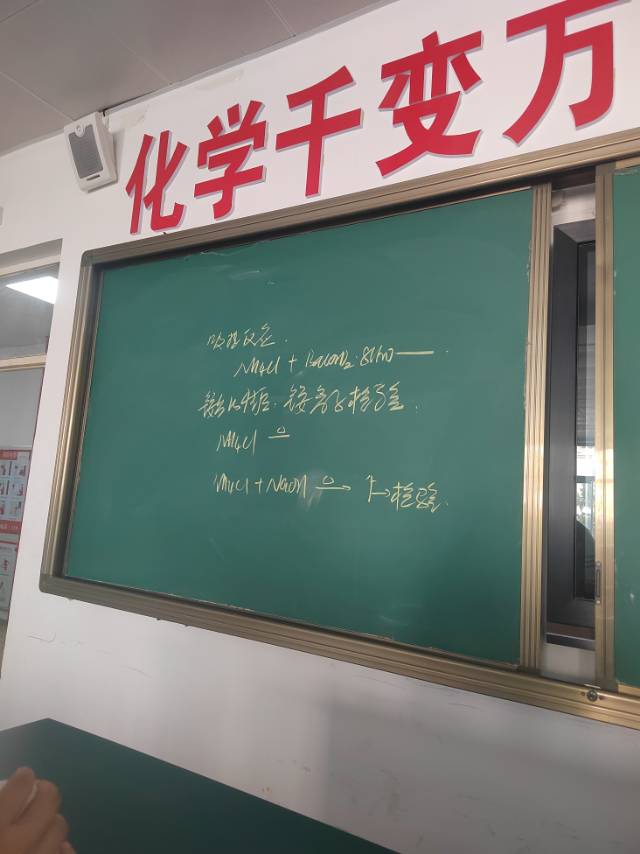 化学千变万
吸热反应.
NH4Cl + Ba(OH)2·8H2O ——
铵盐的性质. 铵离子检验.
NH4Cl △
NH4Cl + NaOH △→ 检验.